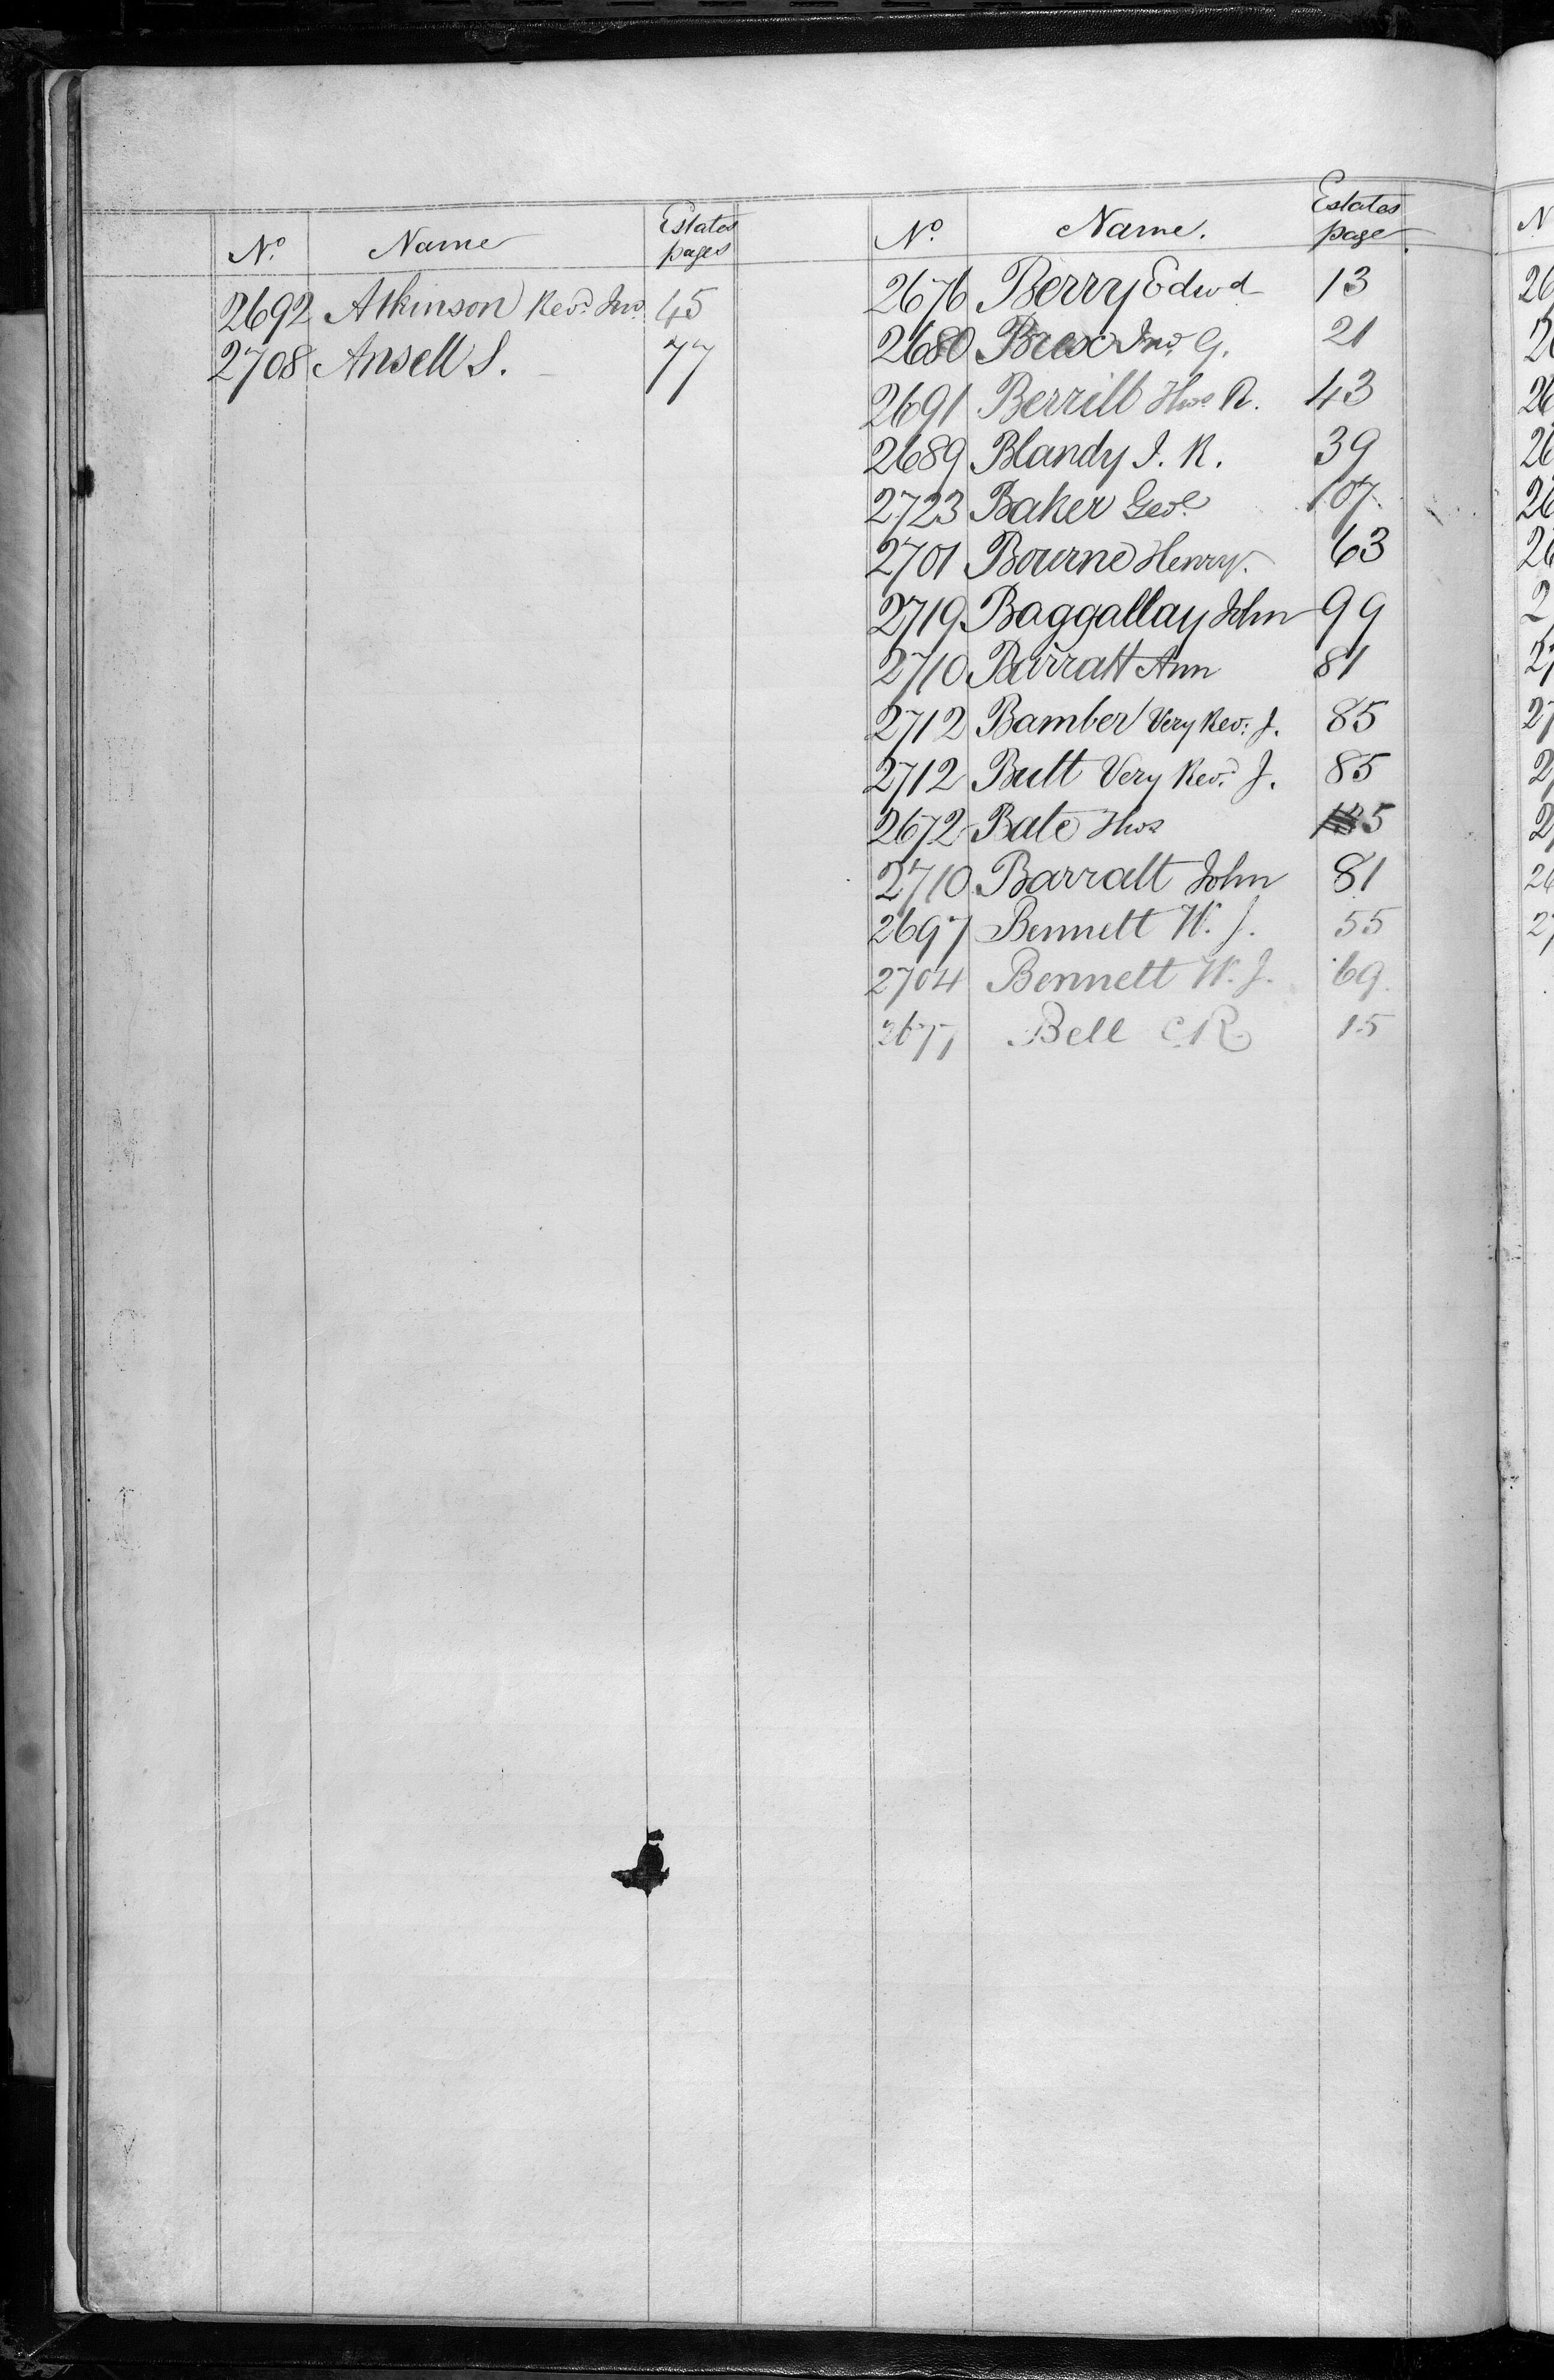 No. Name Estates pages
2692 Atkinson Revd. Jno. 45
2708 Ansell S. 77
No. Name. Estates page
2676 Berry Edwd 13
2680 Jno. G. 21
2691 Berrill Thos. R. 43
2689 Blandy J. R. 39
2723 Baker Geo. 107
2701 Bourne Henry. 63
2719 Baggallay John 99
2710 Barratt Ann 81
2712 Bamber Very Rev: J. 85
2712 Butt Very Revd. J. 85
2672 Bate Thos 5
2710 Barratt John 81
2697 Bennett W. J. 55
2704 Bennett W. J. 69
2677 Bell C R 15